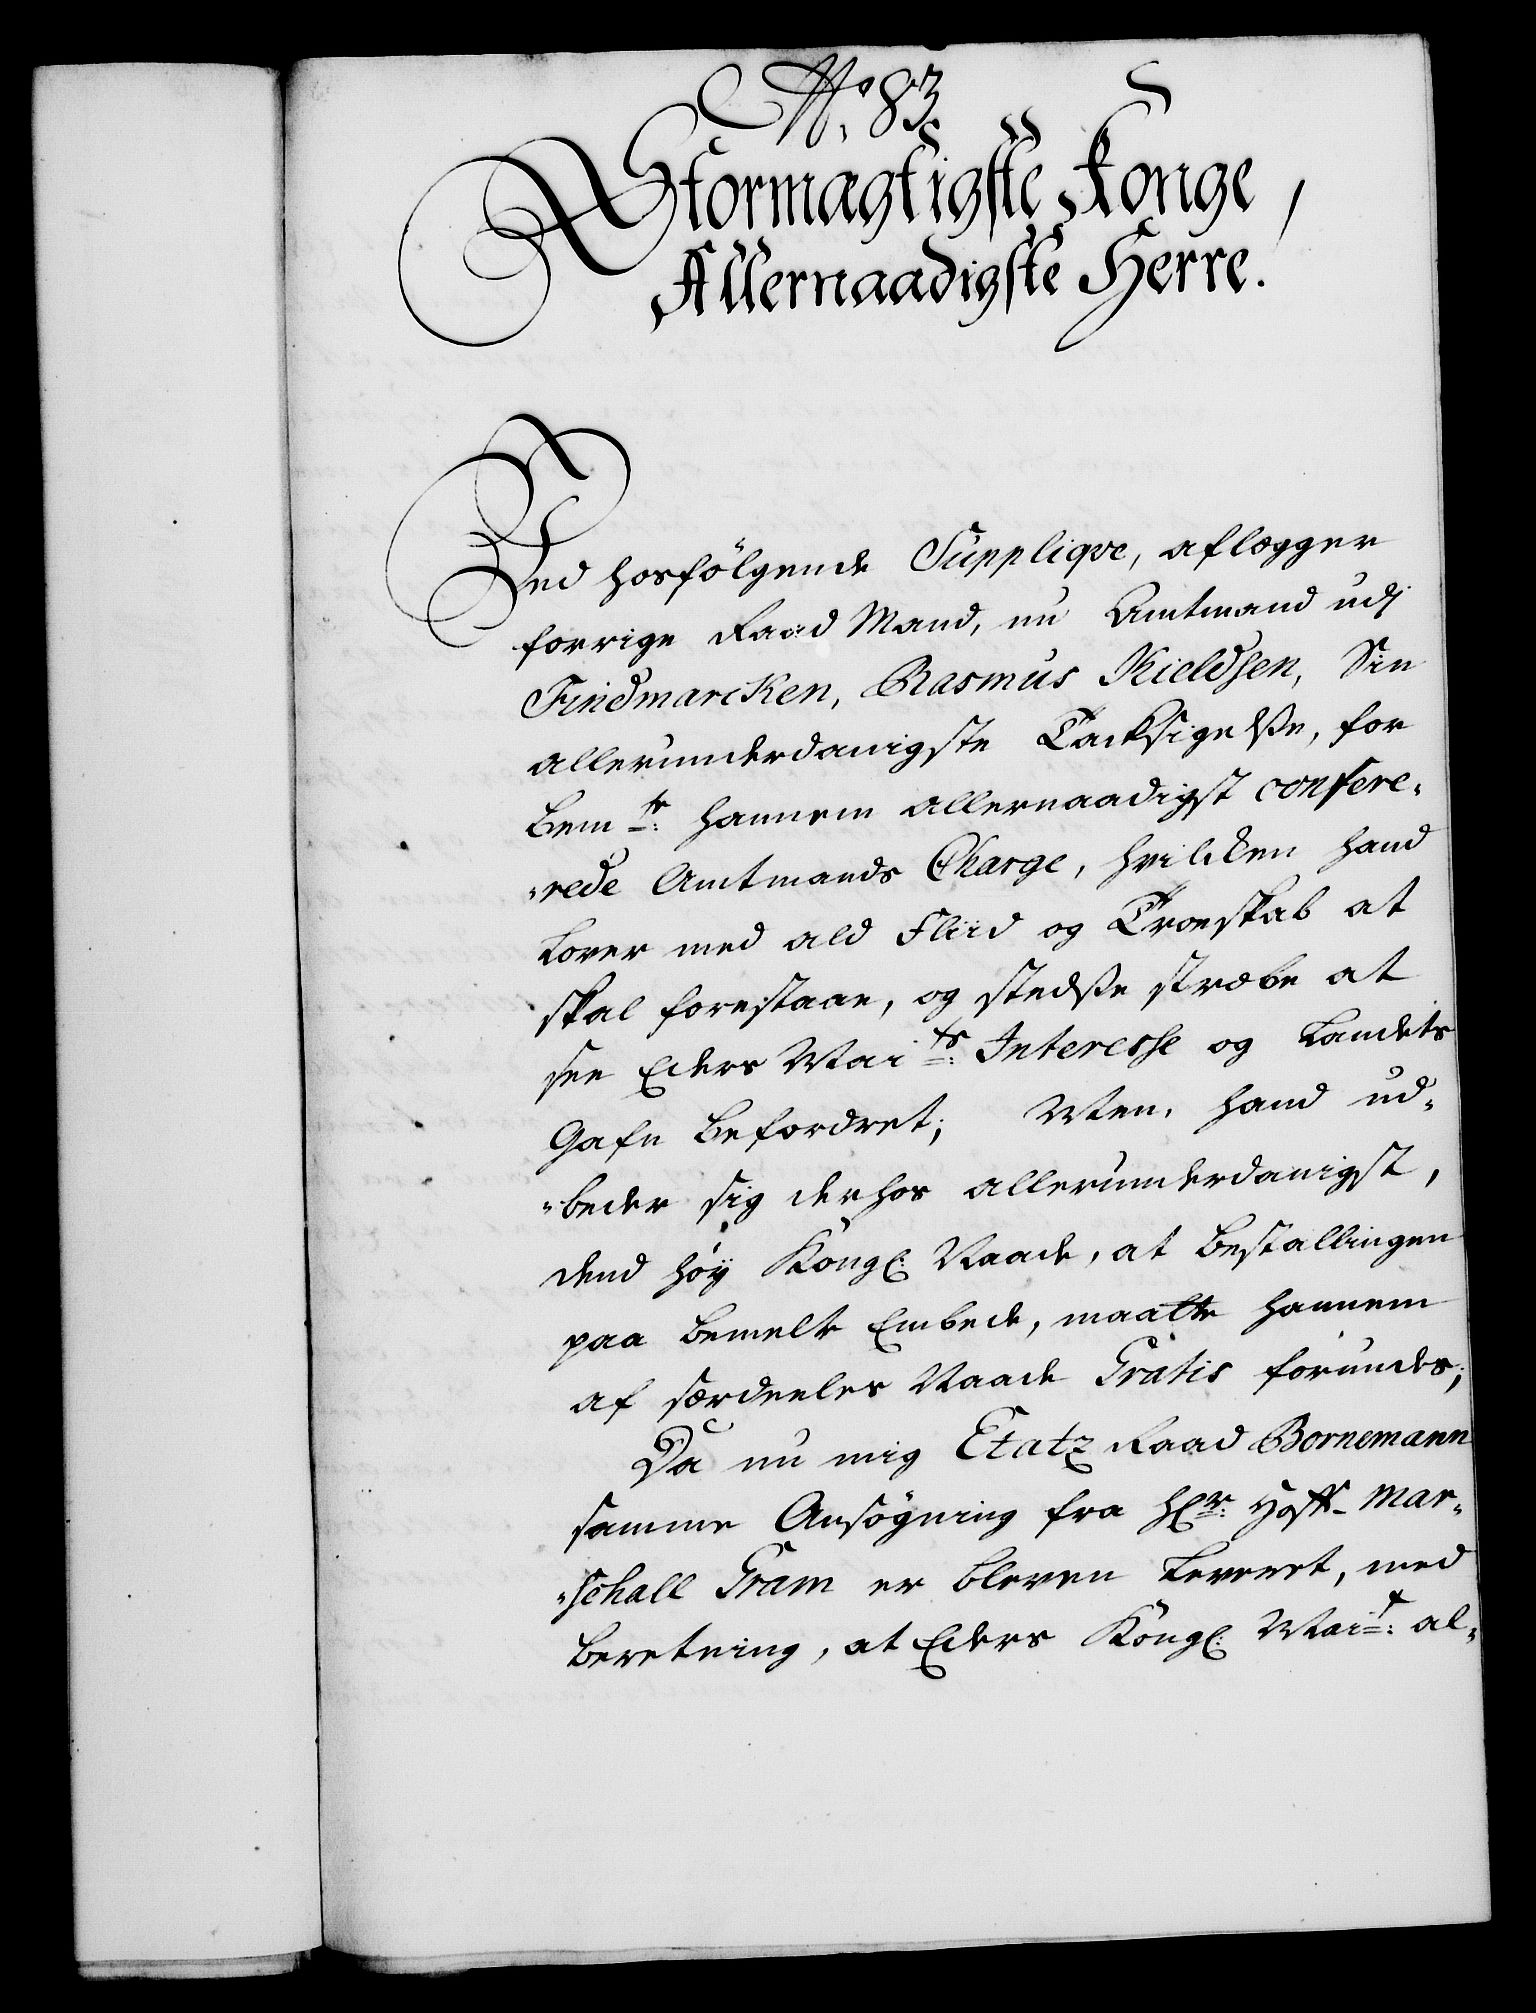 No. 83.
Stormægtigste Konge,
Allernaadigste Herre.
Ved hosfölgende Suppliqve, aflægger
forrige Raad Mand, nu Amtmand udj
Findmarcken, Rasmus Kieldsen, Sin
allerunderdanigste Tacksigelsse, for
bemte: hannem allernaadigst confere„
„rede Amtmands Charge, hvilcken hand
lover med ald Fliid og Troeskab at
skal forestaae, og stedsse stræbe at
see Eders Maits: Interesse og Landets
Gafn befordret; Men, hand ud„
„beder sig derhos allerunderdanigst,
dend höy Kongl: Naade, at Bestallingen
paa bemelte Embede, maatte hannem
af særdeeles Naade Gratis forundes;
Da nu mig Etatz Raad Bornemann
samme Ansögning fra Hr: Hoff-Mar„
„schall Gram er bleven leveret, med
beretning, at Eders Kongl: Mait: al„